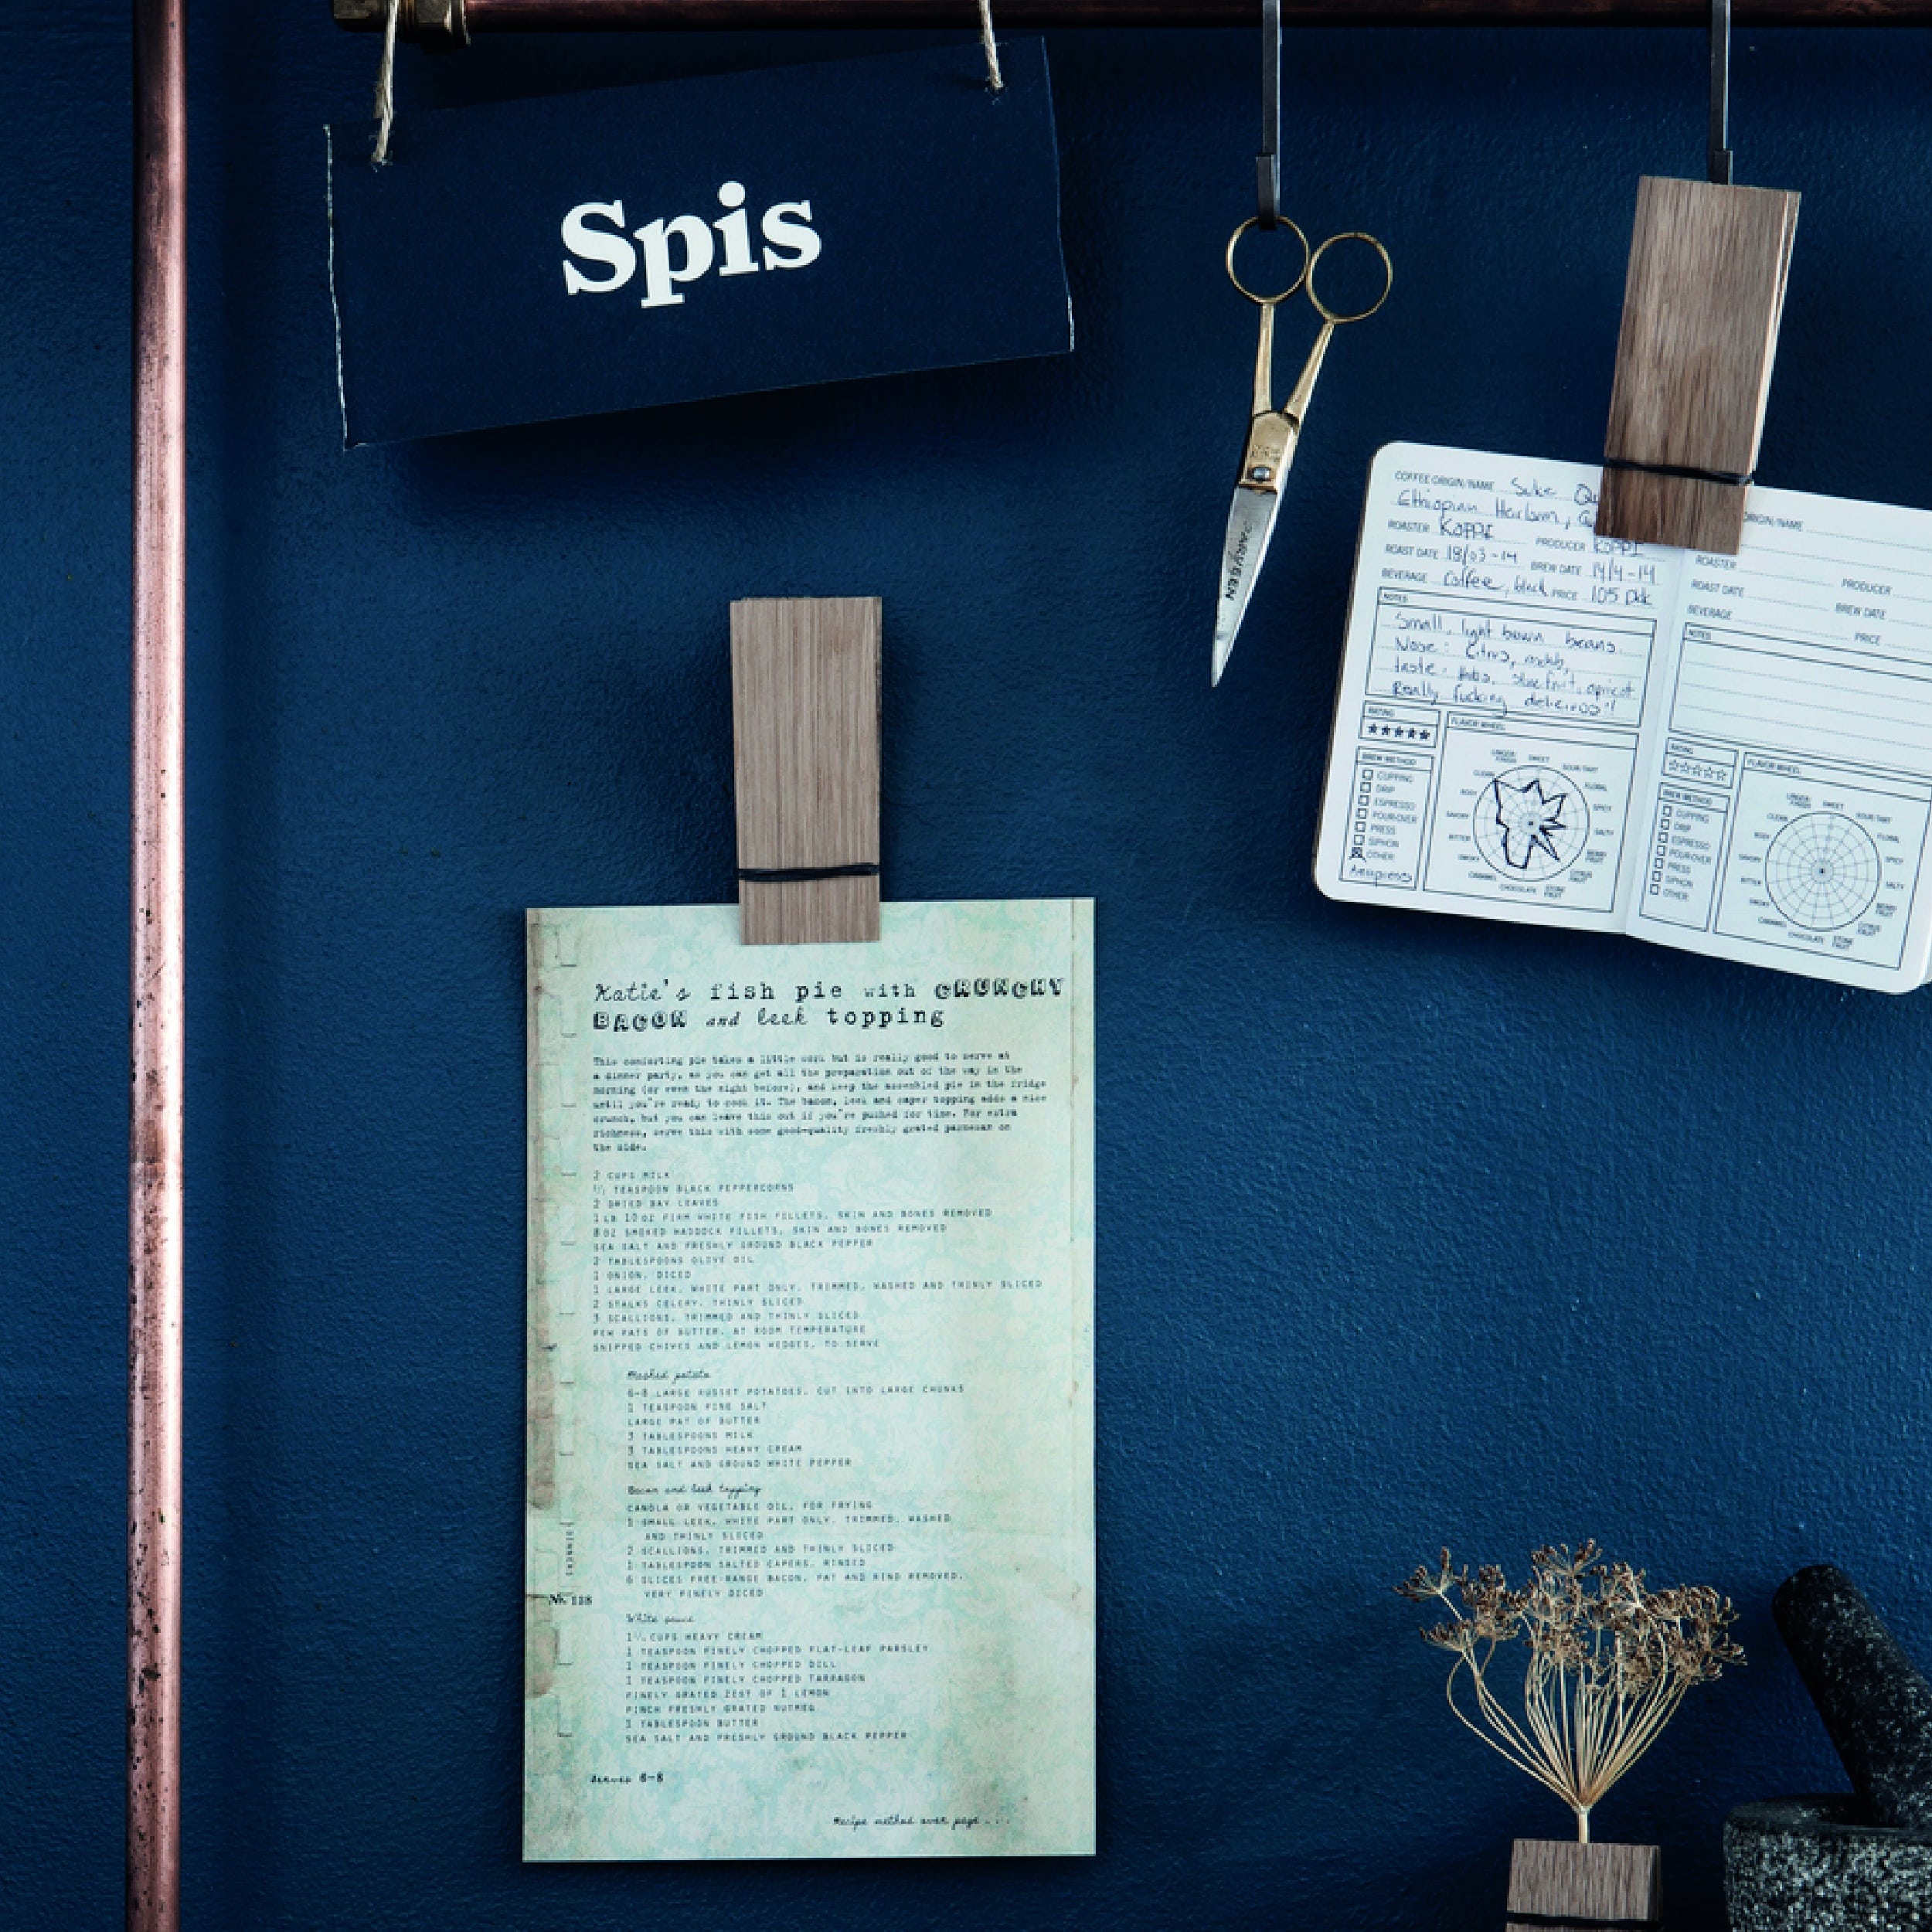 Spis
COFFEE ORIGIN/NAME
Ethiopian Heirloom,
ROASTER KOPPI PRODUCER KOPPI
ROAST DATE 18/03-14 BREW DATE 14/4-14
BEVERAGE Coffee, black PRICE 105 DKK
NOTES
Small, light brown beans.
Nose: Citrus,
taste: stonefruit, apricot
Really fucking delicious!!
RATING
★★★★★
FLAVOR WHEEL
BREW METHOD
CUPPING
DRIP
ESPRESSO
POUR-OVER
PRESS
SIPHON
OTHER
Aeropress
LINGER/FINISH
SWEET
SOUR/TART
FLORAL
SPICY
SALTY
BERRY FRUIT
CITRUS FRUIT
STONE FRUIT
CHOCOLATE
CARAMEL
SMOKY
BITTER
SAVORY
BODY
CLEAN
ORIGIN/NAME
ROASTER
PRODUCER
ROAST DATE BREW DATE
BEVERAGE PRICE
NOTES
RATING
☆☆☆☆☆
FLAVOR WHEEL
BREW METHOD
CUPPING
DRIP
ESPRESSO
POUR-OVER
PRESS
SIPHON
OTHER
LINGER/FINISH
SWEET
SOUR/TART
FLORAL
SPICY
SALTY
BERRY FRUIT
CITRUS FRUIT
STONE FRUIT
CHOCOLATE
CARAMEL
SMOKY
BITTER
SAVORY
BODY
CLEAN
Katie's fish pie with CRUNCHY
BACON and leek topping
This comforting pie takes a little work but is really good to serve at
a dinner party, as you can get all the preparation out of the way in the
morning (or even the night before), and keep the assembled pie in the fridge
until you're ready to cook it. The bacon, leek and caper topping adds a nice
crunch, but you can leave this out if you're pushed for time. For extra
richness, serve this with some good-quality freshly grated parmesan on
the side.
2 CUPS MILK
TEASPOON BLACK PEPPERCORNS
2 DRIED BAY LEAVES
1 LB 10 OZ FIRM WHITE FISH FILLETS, SKIN AND BONES REMOVED
8 OZ SMOKED HADDOCK FILLETS, SKIN AND BONES REMOVED
SEA SALT AND FRESHLY GROUND BLACK PEPPER
2 TABLESPOONS OLIVE OIL
1 ONION, DICED
1 LARGE LEEK, WHITE PART ONLY, TRIMMED, WASHED AND THINLY SLICED
2 STALKS CELERY, THINLY SLICED
3 SCALLIONS, TRIMMED AND THINLY SLICED
FEW PATS OF BUTTER, AT ROOM TEMPERATURE
SNIPPED CHIVES AND LEMON WEDGES, TO SERVE
Mashed potato
6-8 LARGE RUSSET POTATOES, CUT INTO LARGE CHUNKS
1 TEASPOON FINE SALT
LARGE PAT OF BUTTER
3 TABLESPOONS MILK
3 TABLESPOONS HEAVY CREAM
SEA SALT AND GROUND WHITE PEPPER
Bacon and leek topping
CANOLA OR VEGETABLE OIL, FOR FRYING
1 SMALL LEEK, WHITE PART ONLY, TRIMMED, WASHED
AND THINLY SLICED
2 SCALLIONS, TRIMMED AND THINLY SLICED
1 TABLESPOON SALTED CAPERS, RINSED
6 SLICES FREE-RANGE BACON, FAT AND RIND REMOVED,
VERY FINELY DICED
DINNERS
No. 118
White sauce
CUPS HEAVY CREAM
1 TEASPOON FINELY CHOPPED FLAT-LEAF PARSLEY
1 TEASPOON FINELY CHOPPED DILL
1 TEASPOON FINELY CHOPPED TARRAGON
FINELY GRATED ZEST OF 1 LEMON
PINCH FRESHLY GRATED NUTMEG
1 TABLESPOON BUTTER
SEA SALT AND FRESHLY GROUND BLACK PEPPER
Serves 6-8
Recipe method over page...